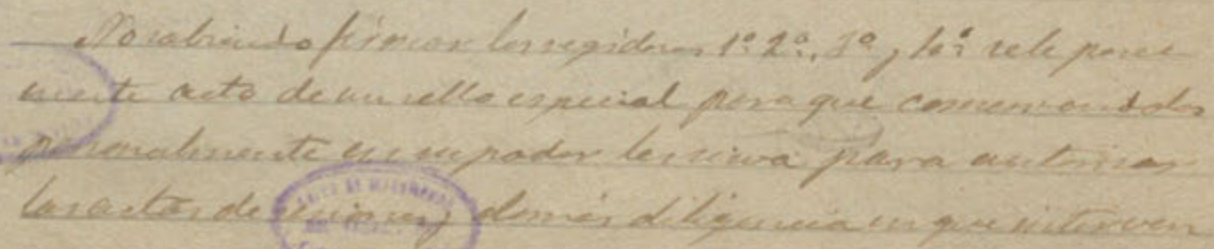 No sabiendo firmar los regidores 1º 2º, 3º y 4º se le
mente acto de un sello especial para que conservandolos
personalmente en su poder les sirva para autorizar
las actas de sesiones y demás diligencia en que interven